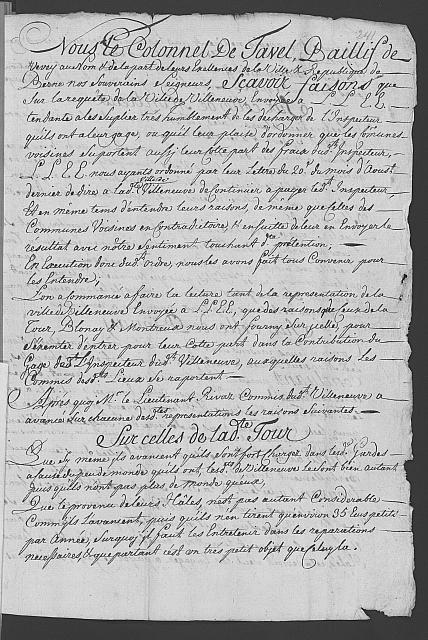 241
Nous le Colonnel De Tavel, Baillif de
Vevey au Nom & de la part de Leurs Excellences de la Ville & Republique de
Berne nos Souverains Seigneurs, Sçavoir faisons que
Sur la requete de la Ville de Villeneuve Envoyée à L L E E
tendante a les Suplier tres humblement de les decharger de l'Inspecteur
quils ont a leur gage, ou qu'il leur plaise d'ordonner que les Comunes
voisines Suportent aussy leur cotte part des fraix dudt Inspecteur,
L L E E nous ayants ordonné par leur lettre du 20e du mois d'Aoust
dernier de dire a ladte Ville de Villeneuve de Continuer a payer ledt Inspecteur
Et en meme tems d'entendre leurs raisons, de même que Celles des
Communes Voisines en Contradictoire, & en suitte de leur en Envoyer le
resultat avec nôtre Sentiment touchant dte pretention,
En Execution donc dudt ordre, nous les avons fait tous Convenir pour
les Entendre,
L'on a Commancé a faire la lecture tant de la representation de la
ville de Villeneuve Envoyée à L L E E, que des raisons que Ceux de la
Tour, Blonay & Montreux nous ont fourny Sur icelle pour
S'éxemter d'entrer pour leur Cotte part dans la Contribution du
Gage dudt Inspecteur dudt Villeneuve, auxquelles raisons les
Commis desdts Lieux Se raportent
Après quoy Mr le Lieutenant Rivaz Commis dudt Villeneuve a
avancé Sur chacune desdtes representations les raisons Suivantes.
Sur celles de ladte Tour
Que S'y même ils avancent qu'ils Sont fort Chargez dans lesdts Gardes
a cause du peu de monde quils ont, lesdts de Villeneuve le Sont bien autant
puis quils n'ont pas plus de monde qu'eux,
Que le provenu de leurs Hâles, n'est pas autant Considerable
Comm'ils l'avancent, puis quils n'en tirent qu'environ 35 Eus petits
par Année, Surquoy il faut les Entretenir dans les reparations
necessaires, & que partant c'est un très petit objet que Celuy la.